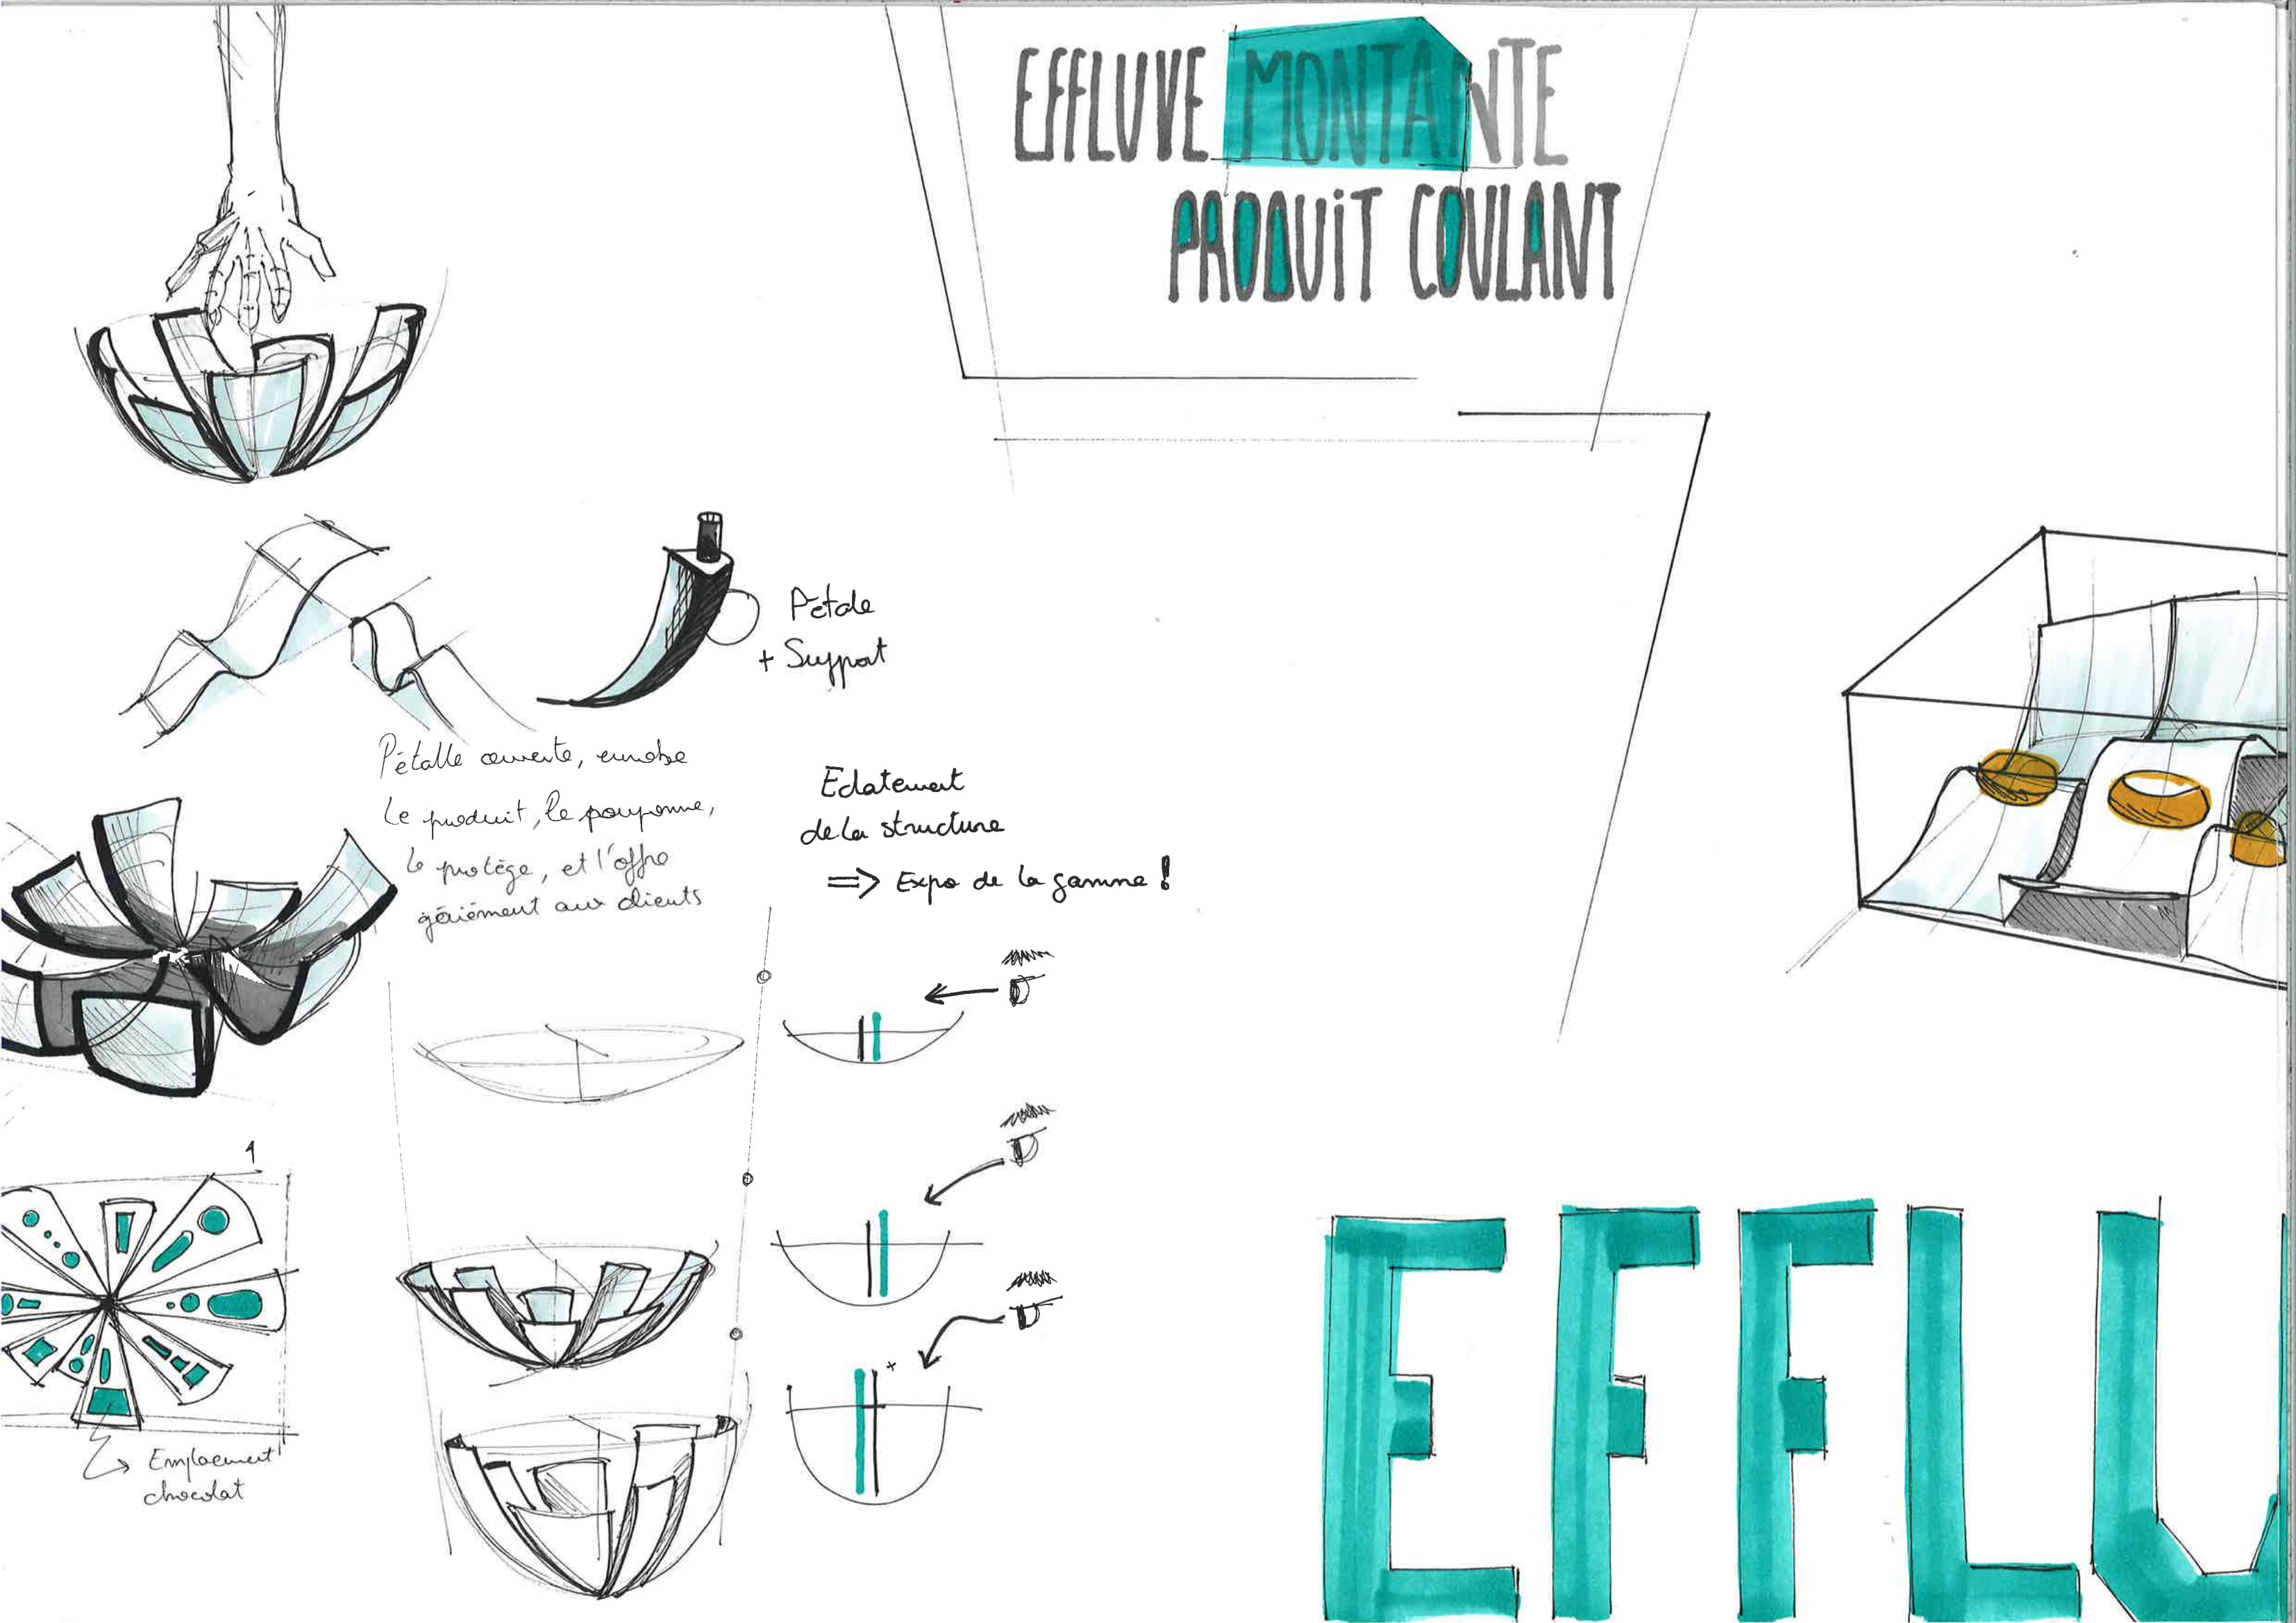 EFFLUVE MONTANTE
PRODUIT COULANT
Pétale
+ Support
Pétalle ouverte, enrobe
le produit, le pouponne,
le protège, et l'offre
aux clients
Eclatement
de la structure
=> Expo de la gamme !
1
+
Emplacement
chocolat
EFFLU